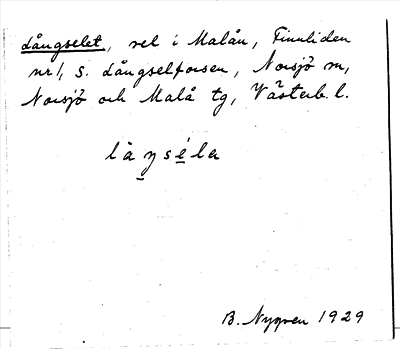 Långselet, sel i Malån, Finnliden
nr 1, S. Långselforsen, Norsjö sn,
Norsjö och Malå tg, Västerb. l.
låŋséla
B. Nygren 1929